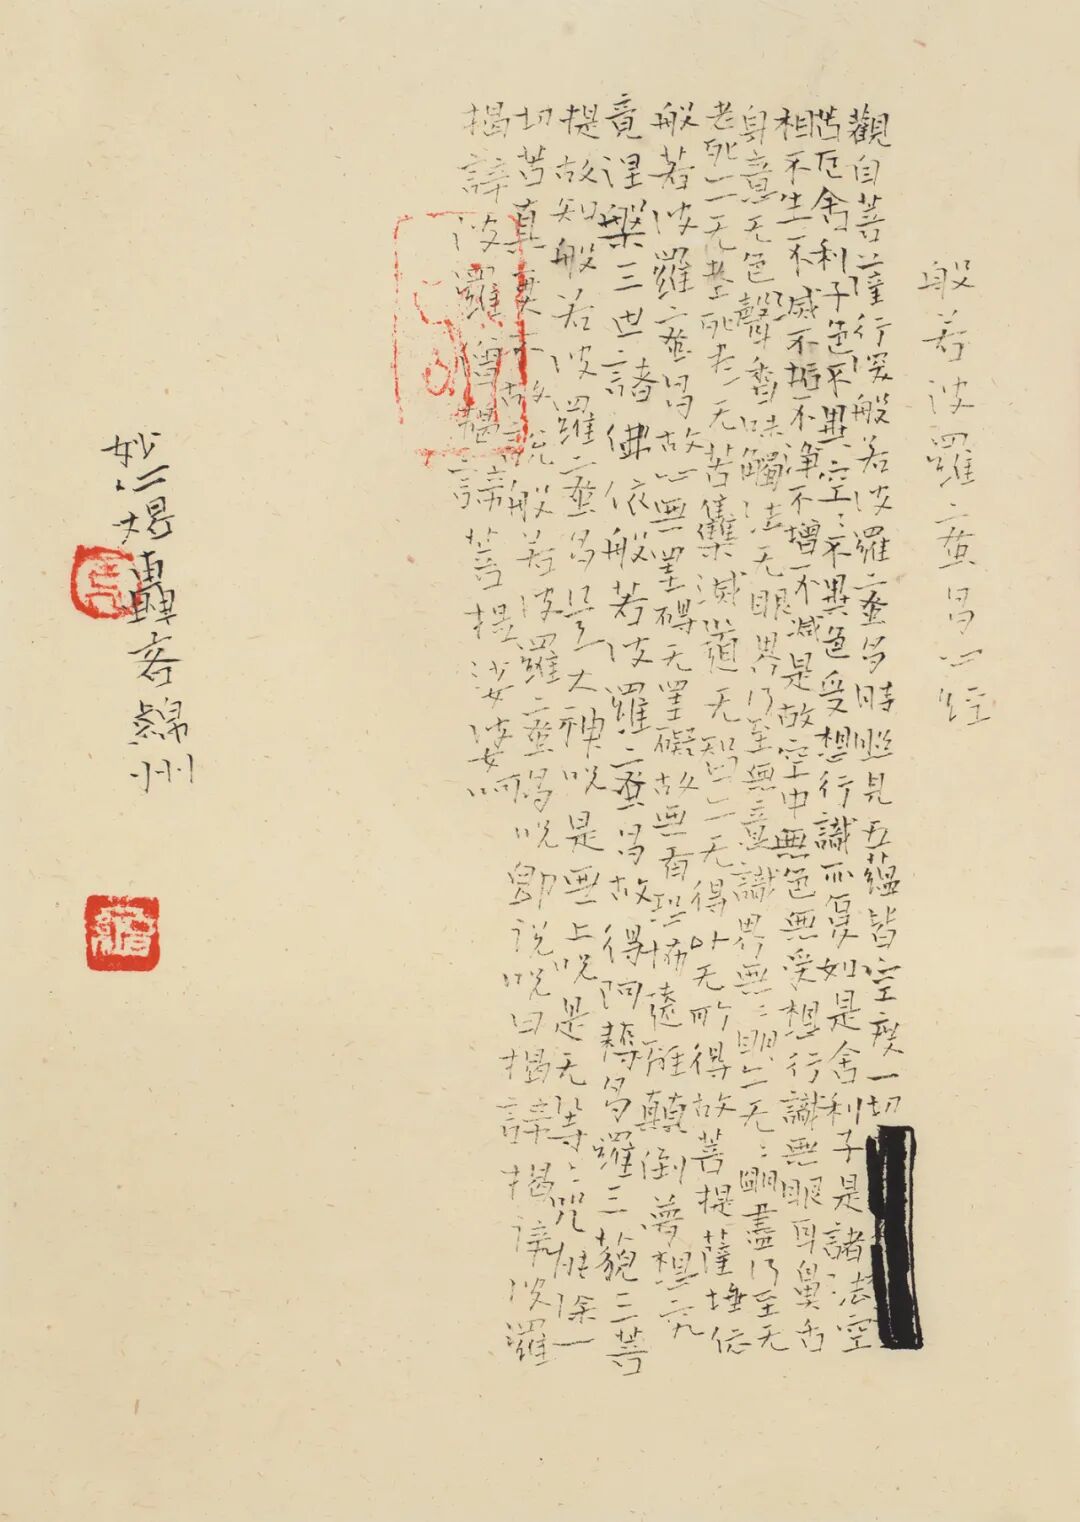 般若波羅蜜多心经
觀自菩薩行深般若波羅蜜多時照見五蘊皆空度一切
苦厄舍利子色不異空〻不異色受想行識亦复如是舍利子是諸法空
相不生不滅不垢不淨不增不減是故空中無色無受想行識無眼耳鼻舌
身意无色聲香味觸法无眼界乃至無意識界無〻明亦无〻明盡乃至无
老死亦无老死尽无苦集滅道无智亦无得以无所得故菩提薩埵依
般若波羅蜜多故心無罣碍无罣礙故無有恐怖遠離顛倒夢想究
竟涅槃三世諸佛依般若波羅蜜多故得阿耨多羅三藐三菩
提故知般若波羅蜜多是大神咒是無上咒是无等〻咒能除一
切苦真實不故說般若波羅蜜多咒卽说咒曰揭諦揭諦波羅
揭諦波羅僧揭諦菩提娑婆呵
妙仁楊客綿州